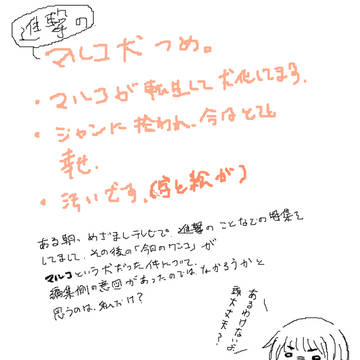 進撃の
マルコ犬つめ。
・マルコが転生して犬化してます。
・ジャンに拾われ、今はとても
幸せ。
・汚いです。(字と絵が)
ある朝、めざましテレビで、進撃のことなどの特集を
してまして、その後の「今日のワンコ」が
マルコという犬だった件について。
編集側の意図があったのではなかろうかと
思うのは、私だけ?
あるわけないよ
頭大丈夫?